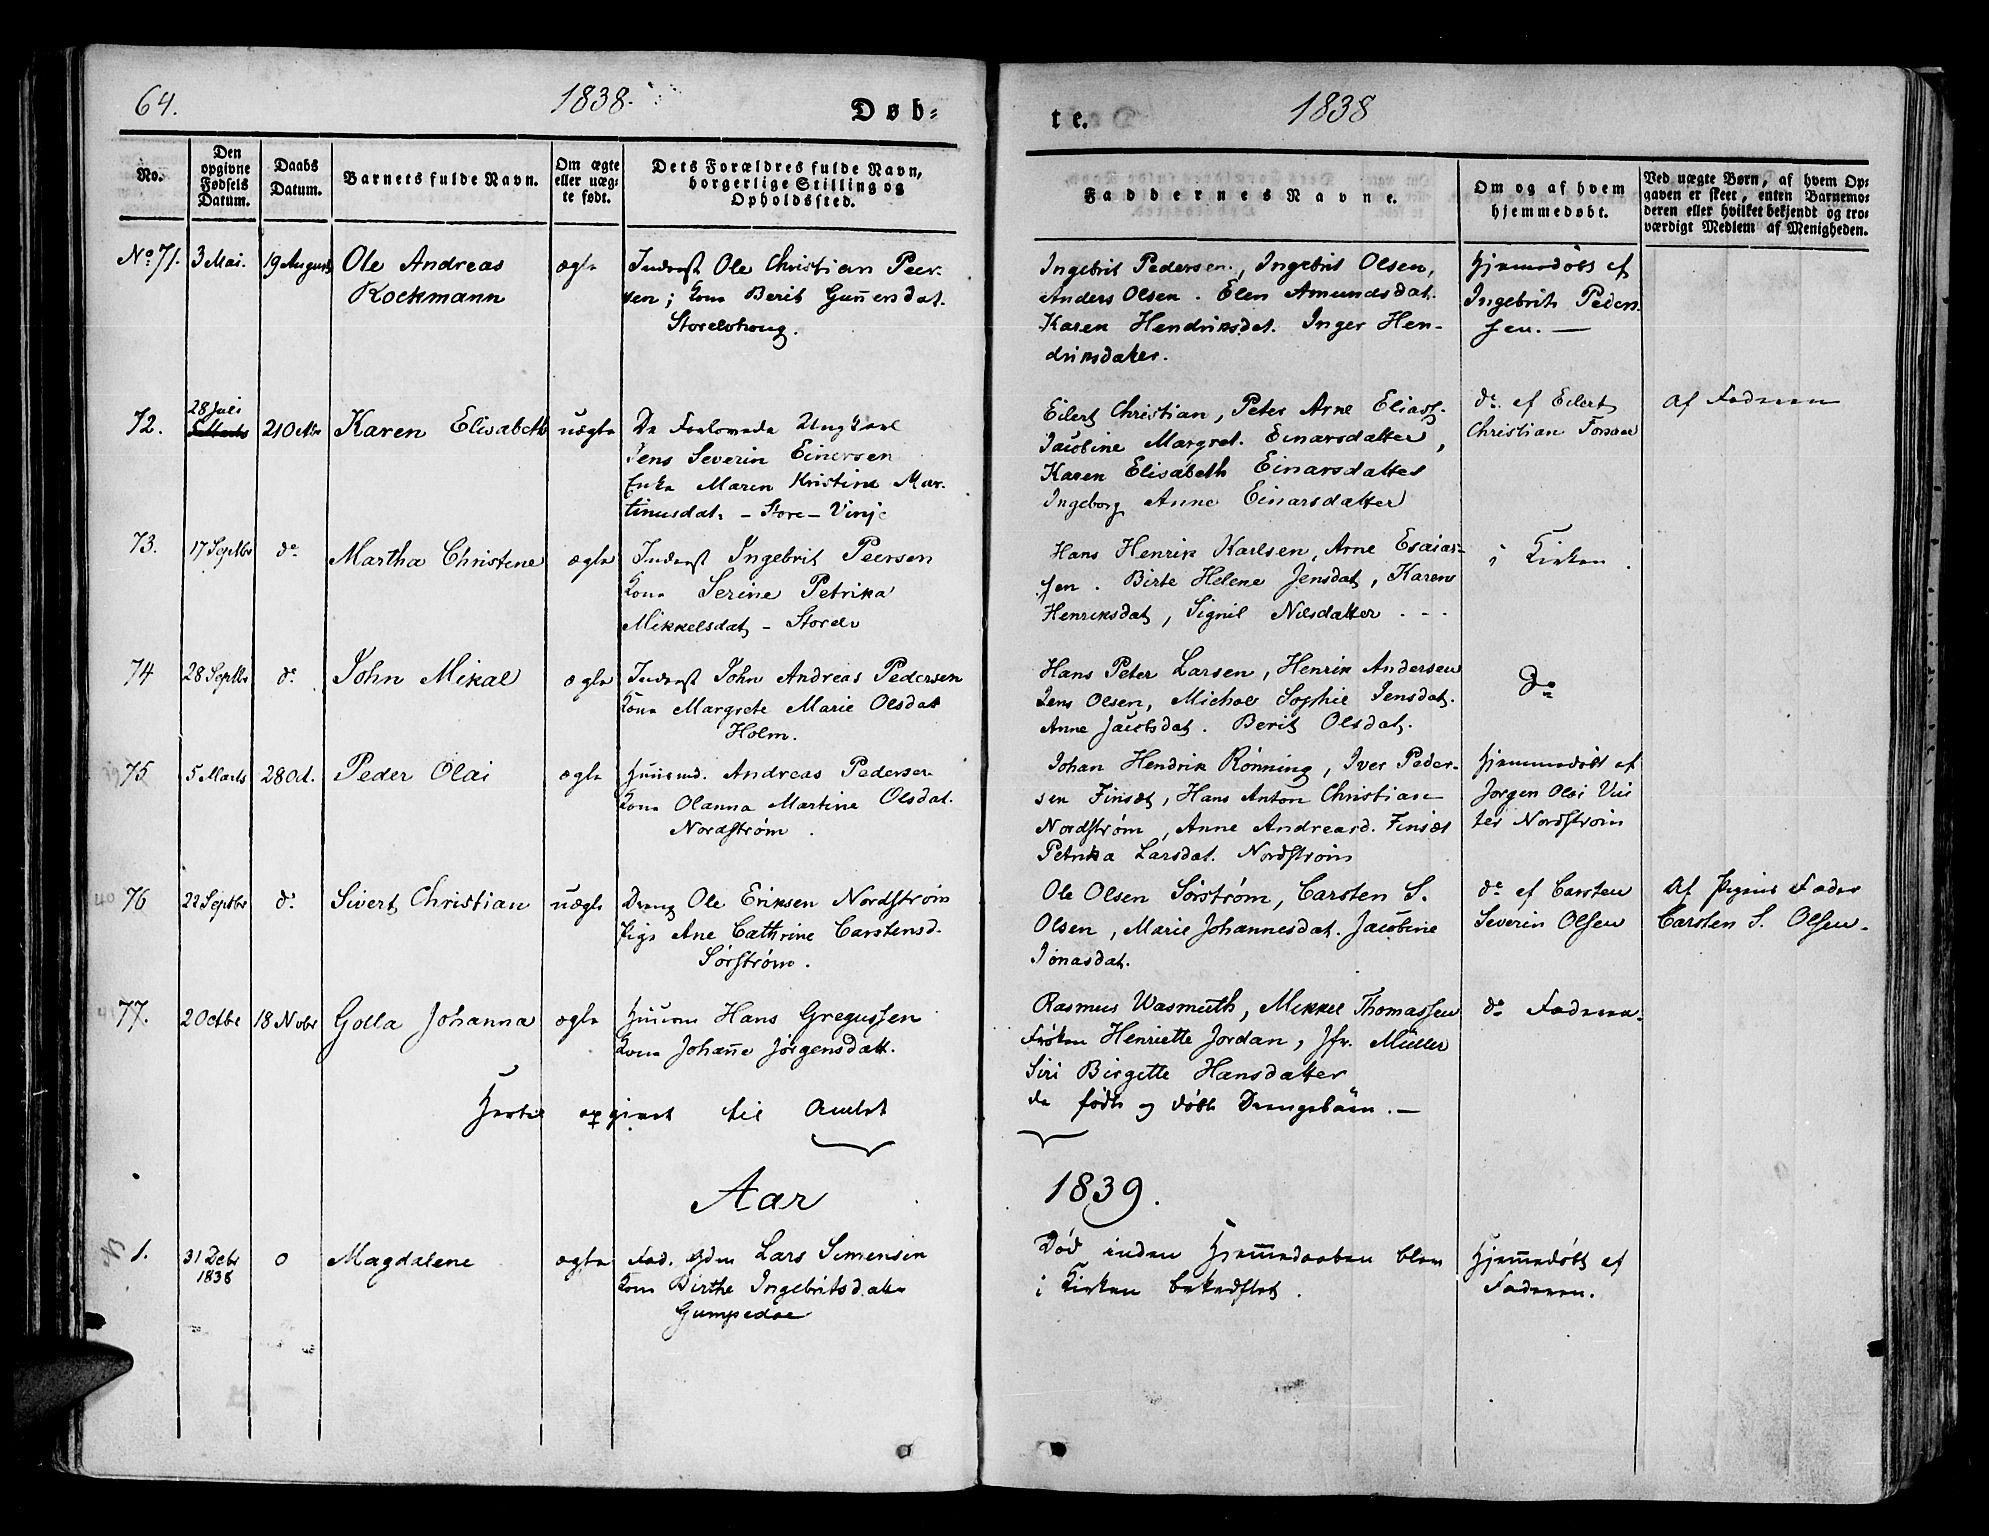 64.
1838.
Døb-
No.
Den
opgivne
Fødsels
Datum.
Daabs
Datum.
Barnets fulde Navn.
Om ægte
eller uæg-
te født.
Dets Forældres fulde Navn,
borgerlige Stilling og
Opholdssted.
No 71.
3 Mai.
19 August
Ole Andreas
Rockmann
ægte
Inderst Ole Christian Peer-
sen; Kone Berit Gunnersdat.
72.
28 Juli
21 Octbr
Karen Elisabeth
uægte
De Forlovede Ungkarl
Jens Severin Einersen
Enke Maren Kristine Mar-
tinusdat. - Store - Vinje
73.
17 Septbr
do
Martha Christine
ægte
Inderst Ingebrit Peersen
Kone Serine Petrika
Mikkelsdat -
74
28 Septbr
do
John Mikal
ægte
Inderst John Andreas Pedersen
Kone Margrete Marie Olsdat
Holm.
75
5 Marts
28 Oct.
Peder Olai
ægte
Huusmd. Andreas Pedersen
Kone Olanna Martine Olsdat.
Nordstrøm.
76
22 Septbr
do
Sivert Christian
uægte
Dreng Ole Eriksen Nordstrøm
Pige Ane Cathrine Carstensd.
Sørstrøm.
77.
2 Octbr
18 Nvbr
Golla Johanna
ægte
Hans Gregussen
Kone Johanne Jørgensdatt.
opgivet til Amtet
Aar
1.
31 Debr
1838
0
Magdalene
ægte
Lars Simensen
Kone Birthe Ingebritsdatter
Gumpedae
te.
1838
Faddernes Navne.
Om og af hvem
hjemmedøbt.
Ved uægte Børn, af hvem Op-
gaven er skeet, enten Barnemo-
deren eller hvilket bekjendt og tro-
værdigt Medlem af Menigheden.
Ingebrit Pedersen, Ingebrit Olsen,
Anders Olsen. Elen Amundsdat.
Karen Hendriksdat. Inger Hen-
driksdatter.
Hjemmedøbt af
Ingebrit Peder-
sen. —
Eilert Christian, Peter Arne Eliass.
Jacobine Margret. Einarsdatter,
Karen Elisabeth Einarsdatter
Ingeborg Anne Einarsdatter
do af Eilert
Christian
af Faderen
Hans Henrik Karlsen, Arne Esaias-
sen. Birte Helene Jensdat, Karen
Henriksdat, Signil Nilsdatter. - -
i Kirken.
Hans Peter Larsen, Henrik Andersen
Jens Olsen, Michal Sophie Jensdat.
Anne Jacobsdat. Berit Olsdat.
Do
Johan Hendrik Rønning, Iver Peder-
sen Finsæt, Hans Anton Christian
Nordstrøm, Anne Andreasd. Finsæt
Petrika Larsdat. Nordstrøm
Hjemmedøbt af
Jørgen Olai
Nordstrøm
Ole Olsen Sørstrøm, Carsten S.
Olsen, Marie Johannesdat. Jacobine
Jonasdat.
do af Carsten
Severin Olsen
Af Pigens Fader
Carsten S. Olsen.
Rasmus Wasmuth, Mikkel Thomassen
Frøken Henriette Jordan, Jfr. Müller
Siri Birgette Hansdatter
do Faderen.
de fødte og døbte Drengebørn. —
1839.
Død inden Hjemmedaaben blev
i Kirken bekræftet.
Hjemmedøbt af
Faderen.